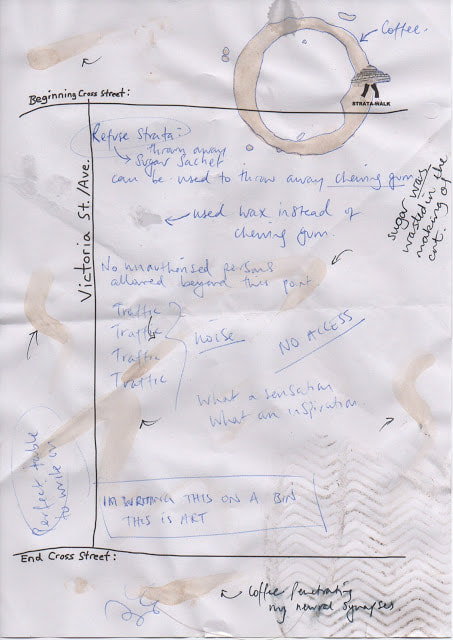 Coffee.
STRATA-WALK
Beginning Cross Street:
Victoria St./Ave.
Refuse Strata:
thrown away
Sugar Sachet
can be used to throw away chewing gum
used wax instead of
chewing gum.
sugar was
wasted in the
making of
No unauthorised persons
allowed beyond this point
Traffic
Traffic
Traffic
Traffic
noise
NO ACCESS
What a sensation
What an inspiration
Perfect table
to write on
IM WRITING THIS ON A BIN
THIS IS ART
End Cross Street:
Coffee penetrating
my neural synapses